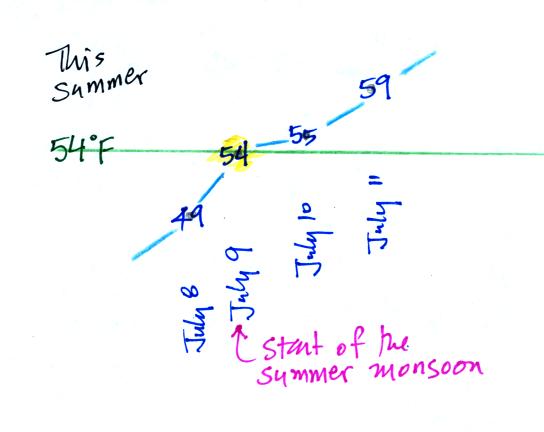 This
summer
59
55
54°F
54
49
July 8
July 9
July 10
July 11
start of the
summer monsoon